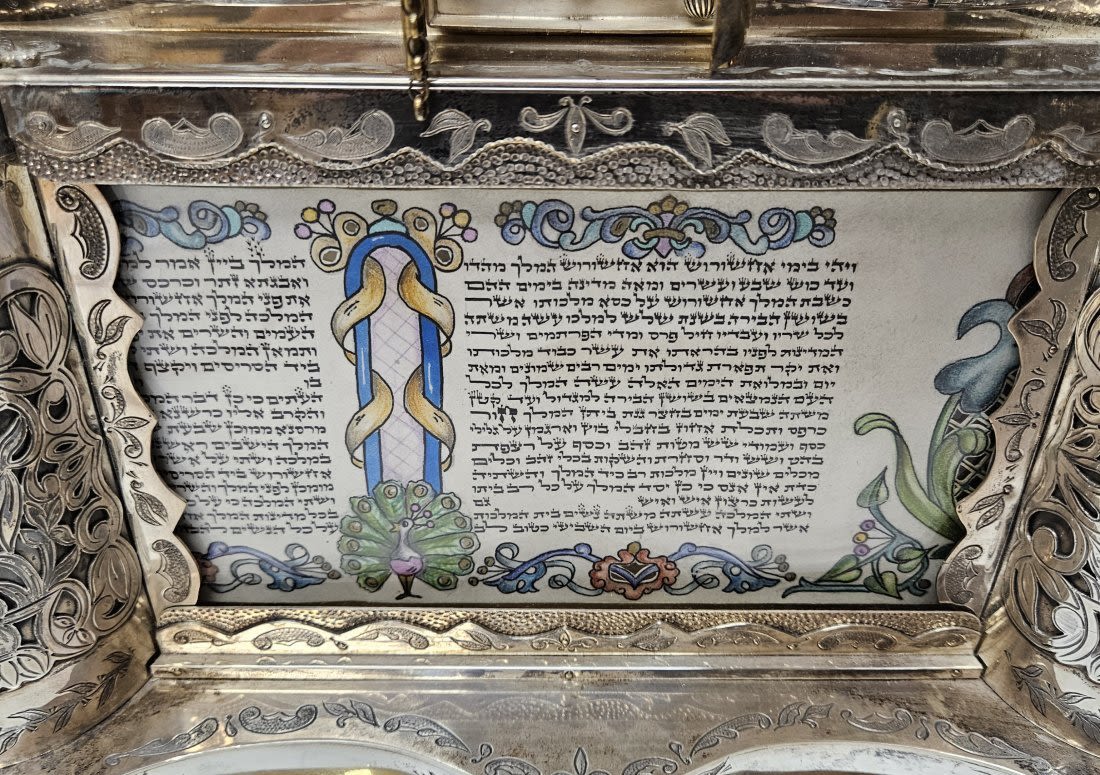 ויהי בימי אחשורוש הוא אחשורוש המלך מהדו
ועד כוש שבע ועשרים ומאה מדינה בימים ההם
כשבת המלך אחשורוש על כסא מלכותו אשר
בשושן הבירה בשנת שלוש למלכו עשה משתה
לכל שריו ועבדיו חיל פרס ומדי הפרתמים ושרי
המדינות לפניו בהראתו את עשר כבוד מלכותו
ואת יקר תפארת גדולתו ימים רבים שמונים ומאת
יום ובמלואת הימים האלה עשה המלך לכל
העם הנמצאים בשושן הבירה למגדול ועד קטן
משתה שבעת ימים בחצר גנת ביתן המלך חור
כרפס ותכלת אחוז בחבלי בוץ וארגמן על גלילי
כסף ועמודי שש מטות זהב וכסף על רצפת
בהט ושש ודר וסחרת והשקות בכלי זהב וכלים
מכלים שונים ויין מלכות רב כיד המלך והשתיה
כדת אין אנס כי כן יסד המלך על כל רב ביתו
לעשות כרצון איש ואיש גם
ושתי המלכה עשתה משתה נשים בית המלכות
אשר למלך אחשורוש ביום השביעי כטוב לב
המלך ביין אמר
ואבגתא זתר וכרכס
את פני המלך
המלכה לפני המלך
העמים והשרים את
ותמאן המלכה ושתי
ביד הסריסים ויקצף
בו
העתים כי כן דבר
והקרב אליו
מרסנא ממוכן שבעת
המלך הישבים
במלכה ושתי על אשר
אחשורוש ביד
מומכן לפני המלך
ושתי המלכה כי על
בכל מדינות המלך
על כל הנשים